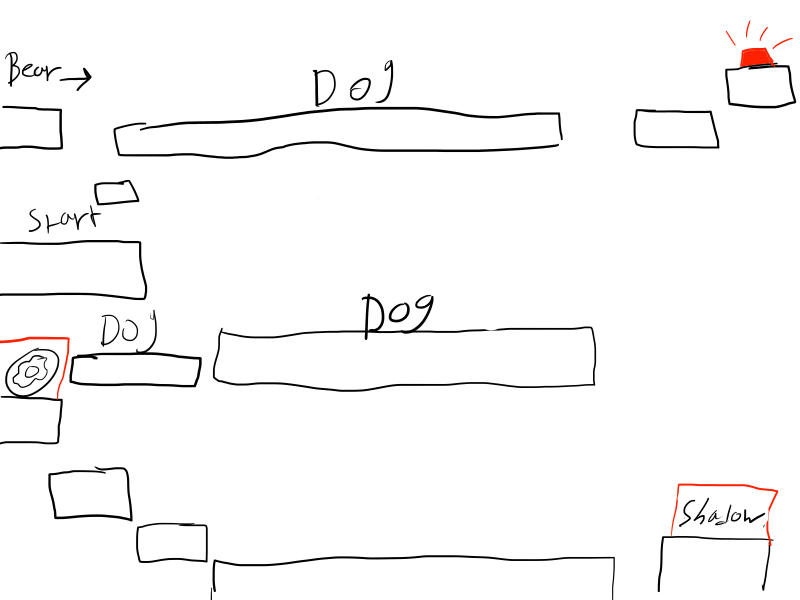 Bear →
Dog
Start
Dog
Dog
Shadow